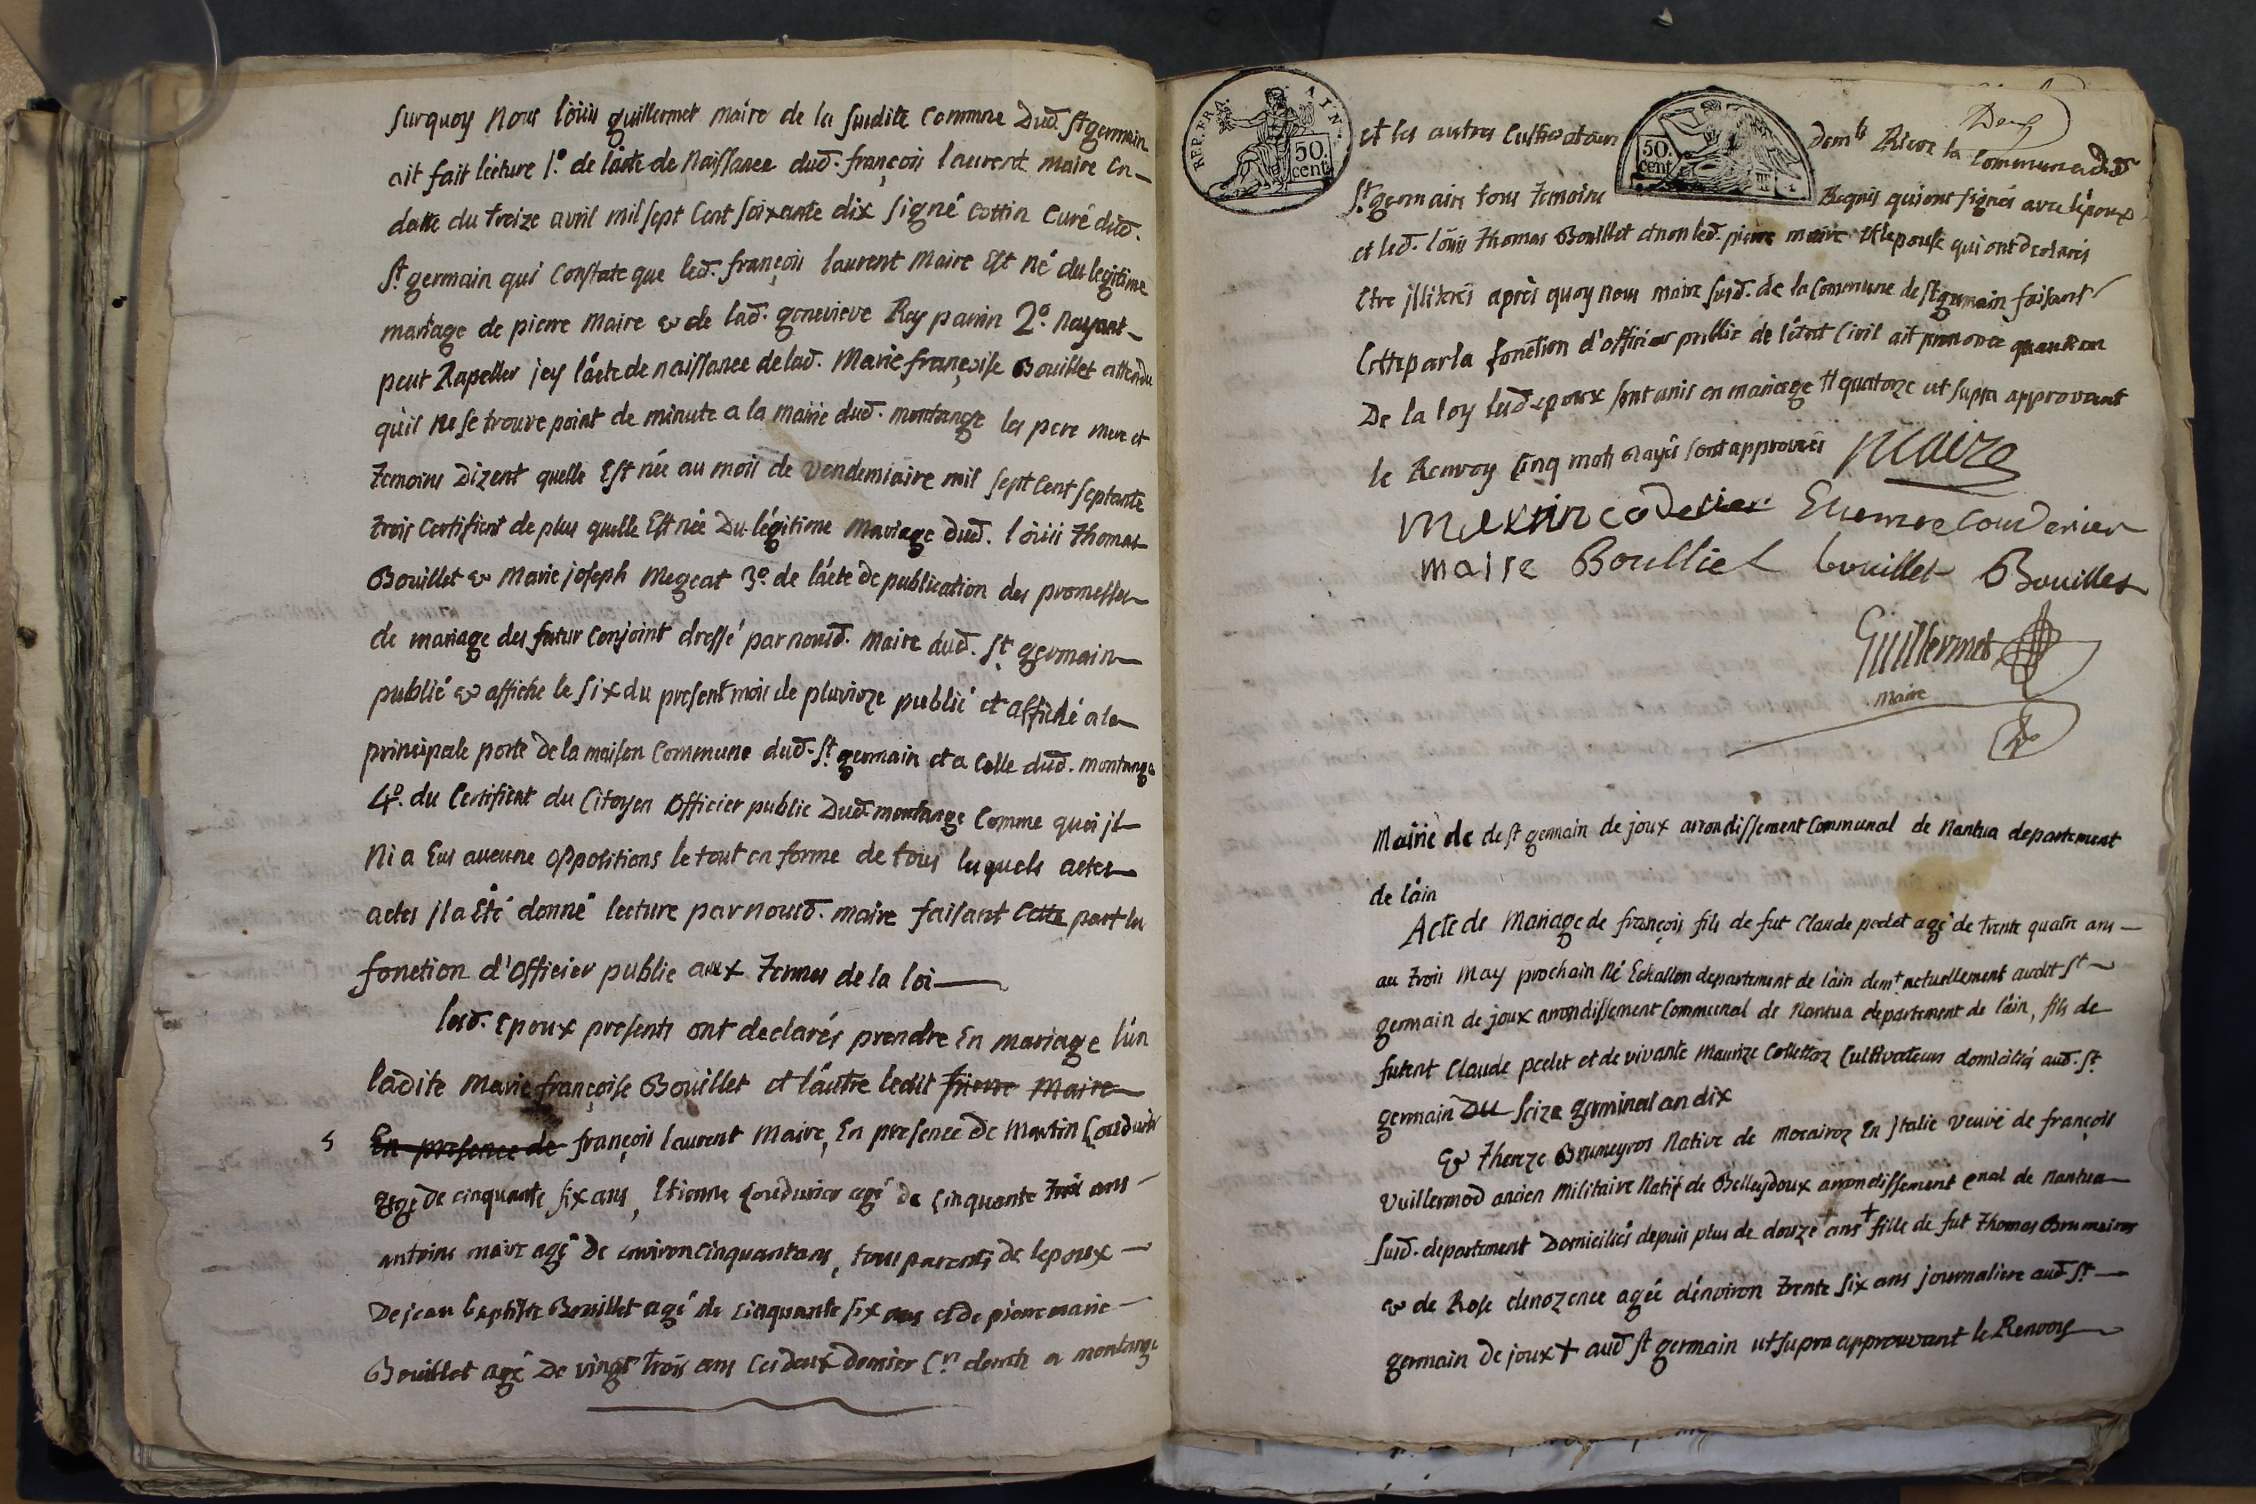 surquoy nous loüis guillermet maire de la susdite commune dud. st germain
ait fait lecture 1.º de lacte de naissance dud. françois laurent maire en
datte du treize avril mil sept cent soixante dix signé cottin curé dud.
st germain qui constate que led. françois laurent maire est né du legitime
mariage de pierre maire & de lad. genevieve Rey panin 2º. nayant
peut Rapeller jcy lacte de naissance de lad. marie françoise Bouillet attendu
qu'il ne se trouve point de minute a la mairie dud. montange les pere mere et
temoins dizent quelle est née au mois de vendemiaire mil sept cent septante
trois certifient de plus quelle est née du légitime mariage dud. loüis thomas
Bouillet & marie joseph megeat 3º de lacte de publication des promesses
de mariage des futur conjoint dressé par nousd. maire dud. st germain
publié & affiche le six du present mois de pluvioze publié et affiché a la
principale porte de la maison commune dud. st germain et a celle dud. montange
4º. du certifient du citoyen officier public dud. montange comme quoi jl
ni a eus aucune oppositions le tout en forme de tous lesquels actes
actes jl a été donné lecture par nousd. maire faisant cette part la
fonction d'officier public aux termes de la loi
lesd. epoux presents ont declarés prendre en mariage l'un
ladite marie françoise Bouillet et lautre ledit pierre maire
5 En presence de françois laurent maire, En presence de martin Coudurier
agé de cinquante six ans, Etienne Coudurier agé de cinquante trois ans
antoine maire agé de environ cinquantans, tous parents de lepoux
De jean baptiste Bouillet agé de cinquante six ans et de pierre marie
Bouillet agé de vingt trois ans ces deux dernier a montange
REP. FRA. AIN 50. cent
50. cent
et les autres cultivateurs demts la commune dud.
st germain tous temoins Requis qui ont signés avec lépoux
et led. loüis thomas Bouillet et non led. pierre maire et lepouse qui ont declarés
etre jlliterés après quoy nous maire susd. de la commune de st germain faisant
cette par la fonction d'officier public de létat civil ait prononcé quau nom
De la loy lesd epoux sont unis en mariage le quatorze ut supra approuvant
le Renvoy cinq mots rayés sont approuvés maire
Martin coderier Etienne Couderier
maire Boulliet bouillet Bouillet
Guillermet
maire
Mairie de de st germain de joux arrondissement communal de nantua departement
de l'ain
Acte de mariage de françois fils de fut claude pedet agé de trente quatre ans
au trois may prochain né Echallon departement de lain demt actuellement audit st
germain de joux arrondissement communal de nantua departement de l'ain, fils de
futent claude pedet et de vivante maurize collettaz cultivateurs domiciliés aud. st
germain DU seize germinal an dix
& thereze Brumeyros native de mocairoz en jtalie veuve de françois
Vuillermod ancien militaire natif de Belleydoux arrondissement cnal de nantua
susd. departement domiciliés depuis plus de douze ans + fille de fut thomas Brumairos
& de Rose denozence agée d'environ trente six ans journaliere aud. st
germain de joux + aud st germain ut supra approuvant le Renvoy